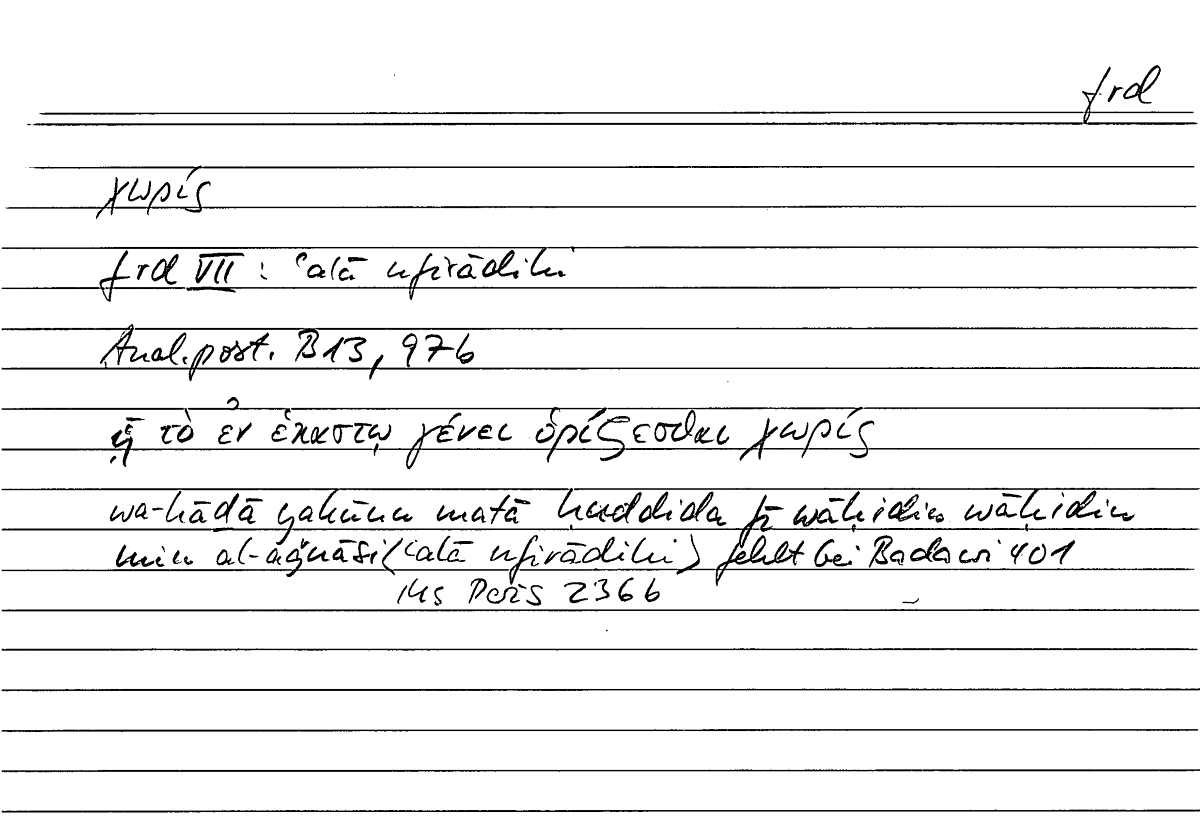 frd
χωρίς
frd VII : ʿalā nfirādihi
Anal. post. B 13, 97b
ᾗ τὸ ἐν ἑκάστῳ γένει ὁρίζεσθαι χωρίς
wa-hāḏā yakūnu matā ḥuddida fī wāḥidin wāḥidin
min al-aǧnāsi (ʿalā nfirādihi) fehlt bei Badawi 401
Ms Paris 236b